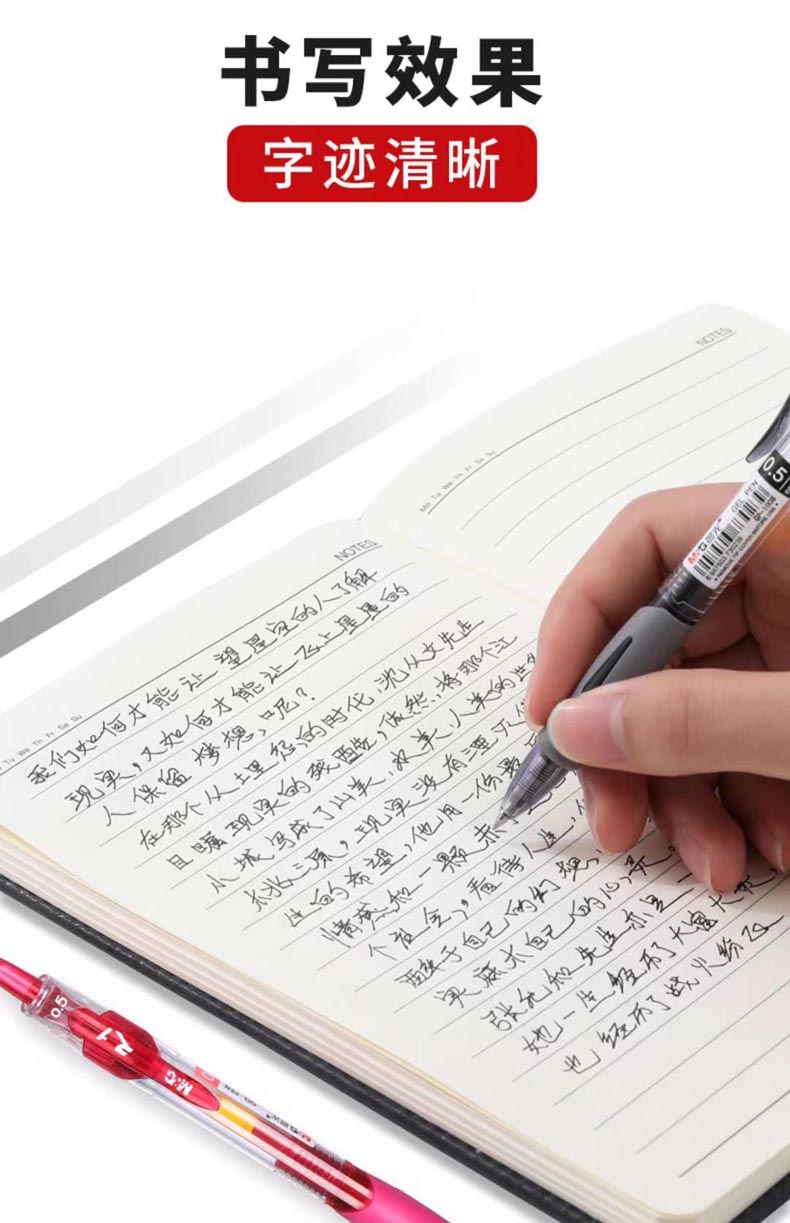 书写效果
字迹清晰
NOTES
Mo Tu We Th Fr Sa Su
NOTES
Tu We Th Fr Sa Su
我们如何才能让望星空的人了解
现实,又如何才能让飞上星星的
人保留梦想,呢?
在那个从土里忽的时代,沈从文先生
且瞩现实的我,依然,将那个江
小城写成了山美,水美,人美的世外
现实没有
生的希望,他用一份最
情感和一颗赤
个社会,看待人生,
醉于自己的幻想,
实藤木自己人的心灵。
张允和先生亦是一
她一生经历了大富大贵,
也经历了战火纷飞
0.5
GEL PEN
GP-1008
M&G 晨光
0.5
R1
M&G
GEL PEN
M&G 晨光